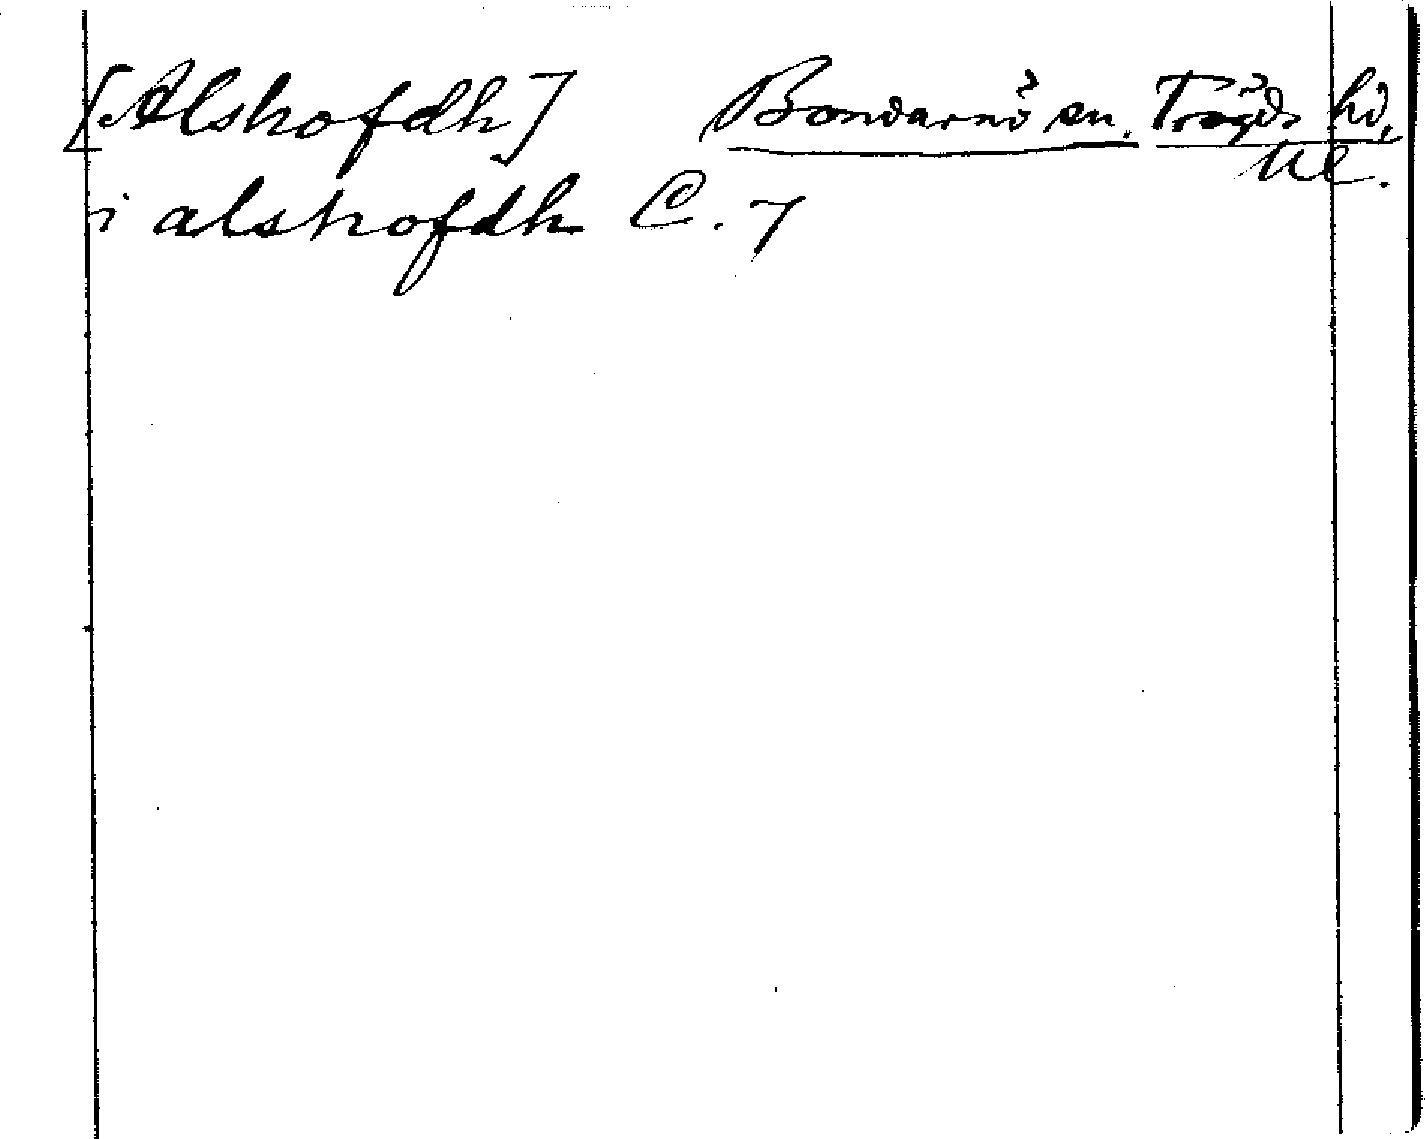 [Alshofdh] Bondarnö sn. Trögds hd,
Ul.
i alshofdh C. 7